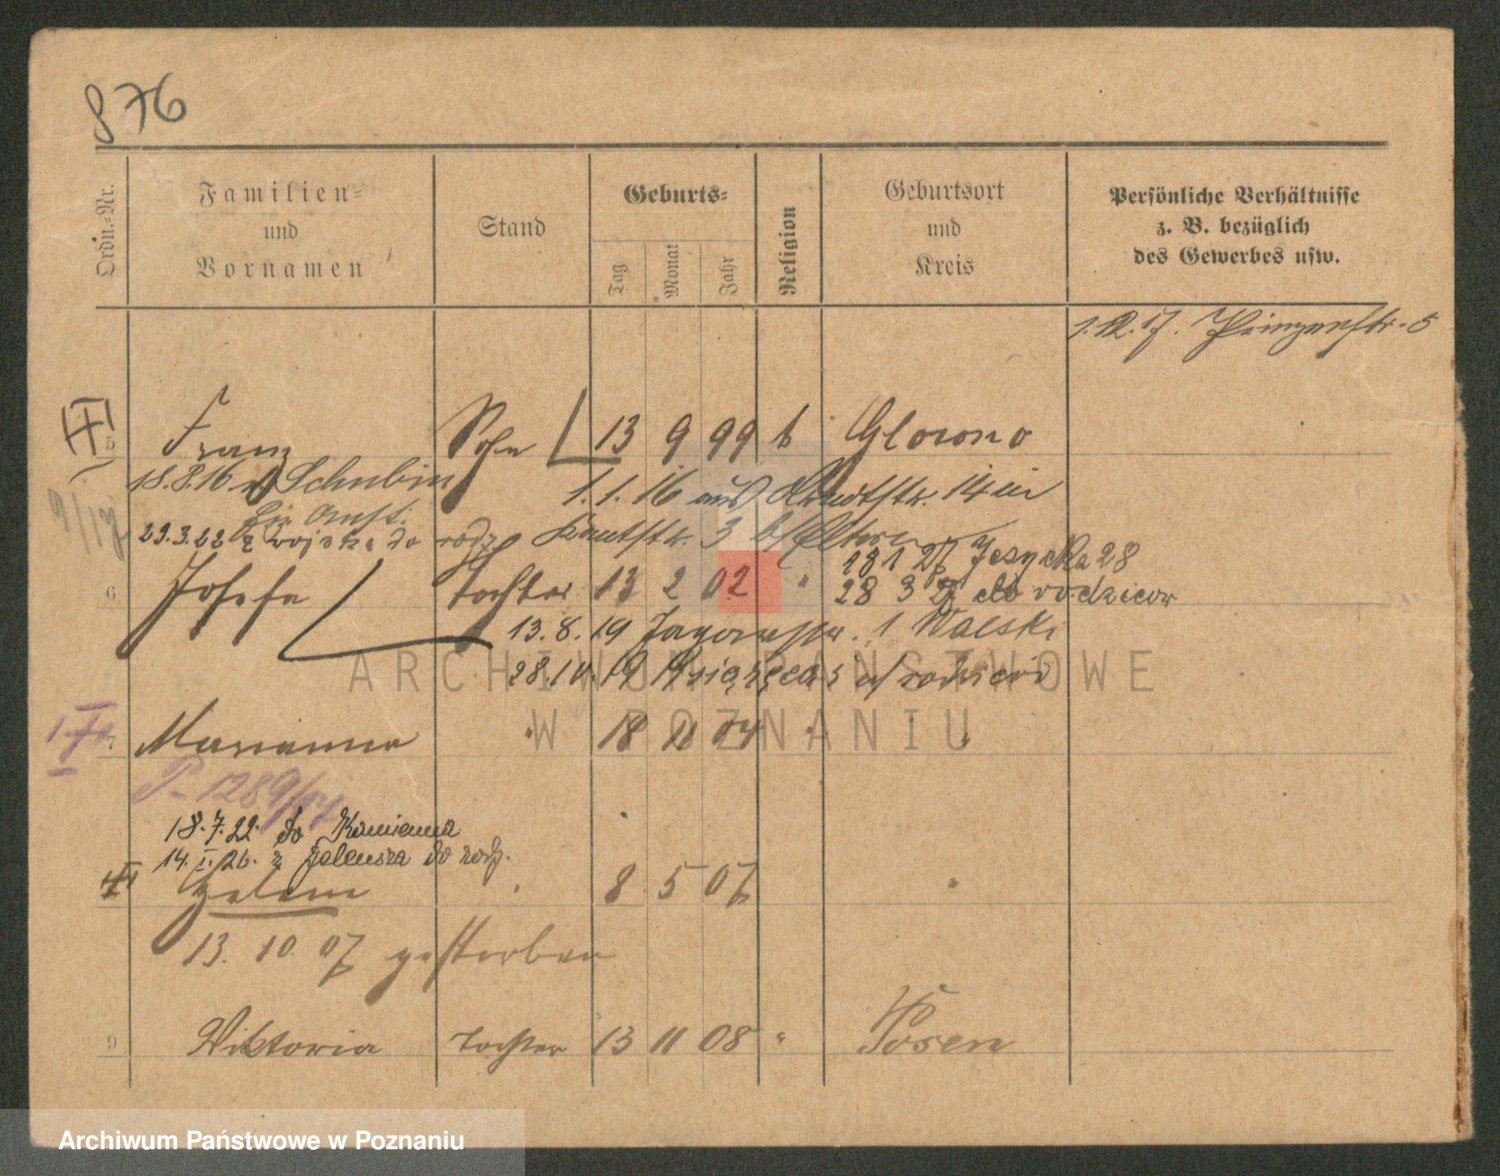 876
Ordn.-Nr.
Familien-
und
Vornamen
Stand
Geburts-
Tag
Monat
Jahr
Religion
Geburtsort
und
Kreis
Persönliche Verhältnisse
z. B. bezüglich
des Gewerbes usw.
1.12.17. Prinzenstr. 5
5 Franz Sohn 13 9 99 k Glowno
18.8.16 Schubin
1.1.16 aus 14
29.3.22 z wojska do rodz
Kantstr. 3 b/ Eltern
18 1 27 28
6 Josefa Tochter 13 2 02 "
28 3 27 do rodziców
13.8.19 1 Walski
28.10.19 5 rodziców
7 Marianna " 18 11 04 " "
P-1289
18.7.22. do Kamienna
14. I. 26. z do rodz.
Helene " 8 5 07 "
13. 10. 07 gestorben
9 Viktoria Tochter 13 11 08 " Posen
ARCHIWUM PAŃSTWOWE
W POZNANIU
Archiwum Państwowe w Poznaniu